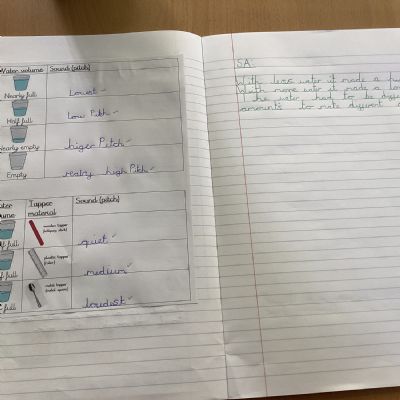 Water volume Sound (pitch)
Nearly full Lowest
Half full Low Pitch
Nearly empty higer Pitch
Empty realry high Pitch
Tapper material Sound (pitch)
full wooden tapper (lollipop stick) quiet
full plastic tapper (ruler) medium
full metal tapper (metal spoon) loudest
SA:
With less water it made a
With more water it made a
The water had to be
amounts to make diffrent